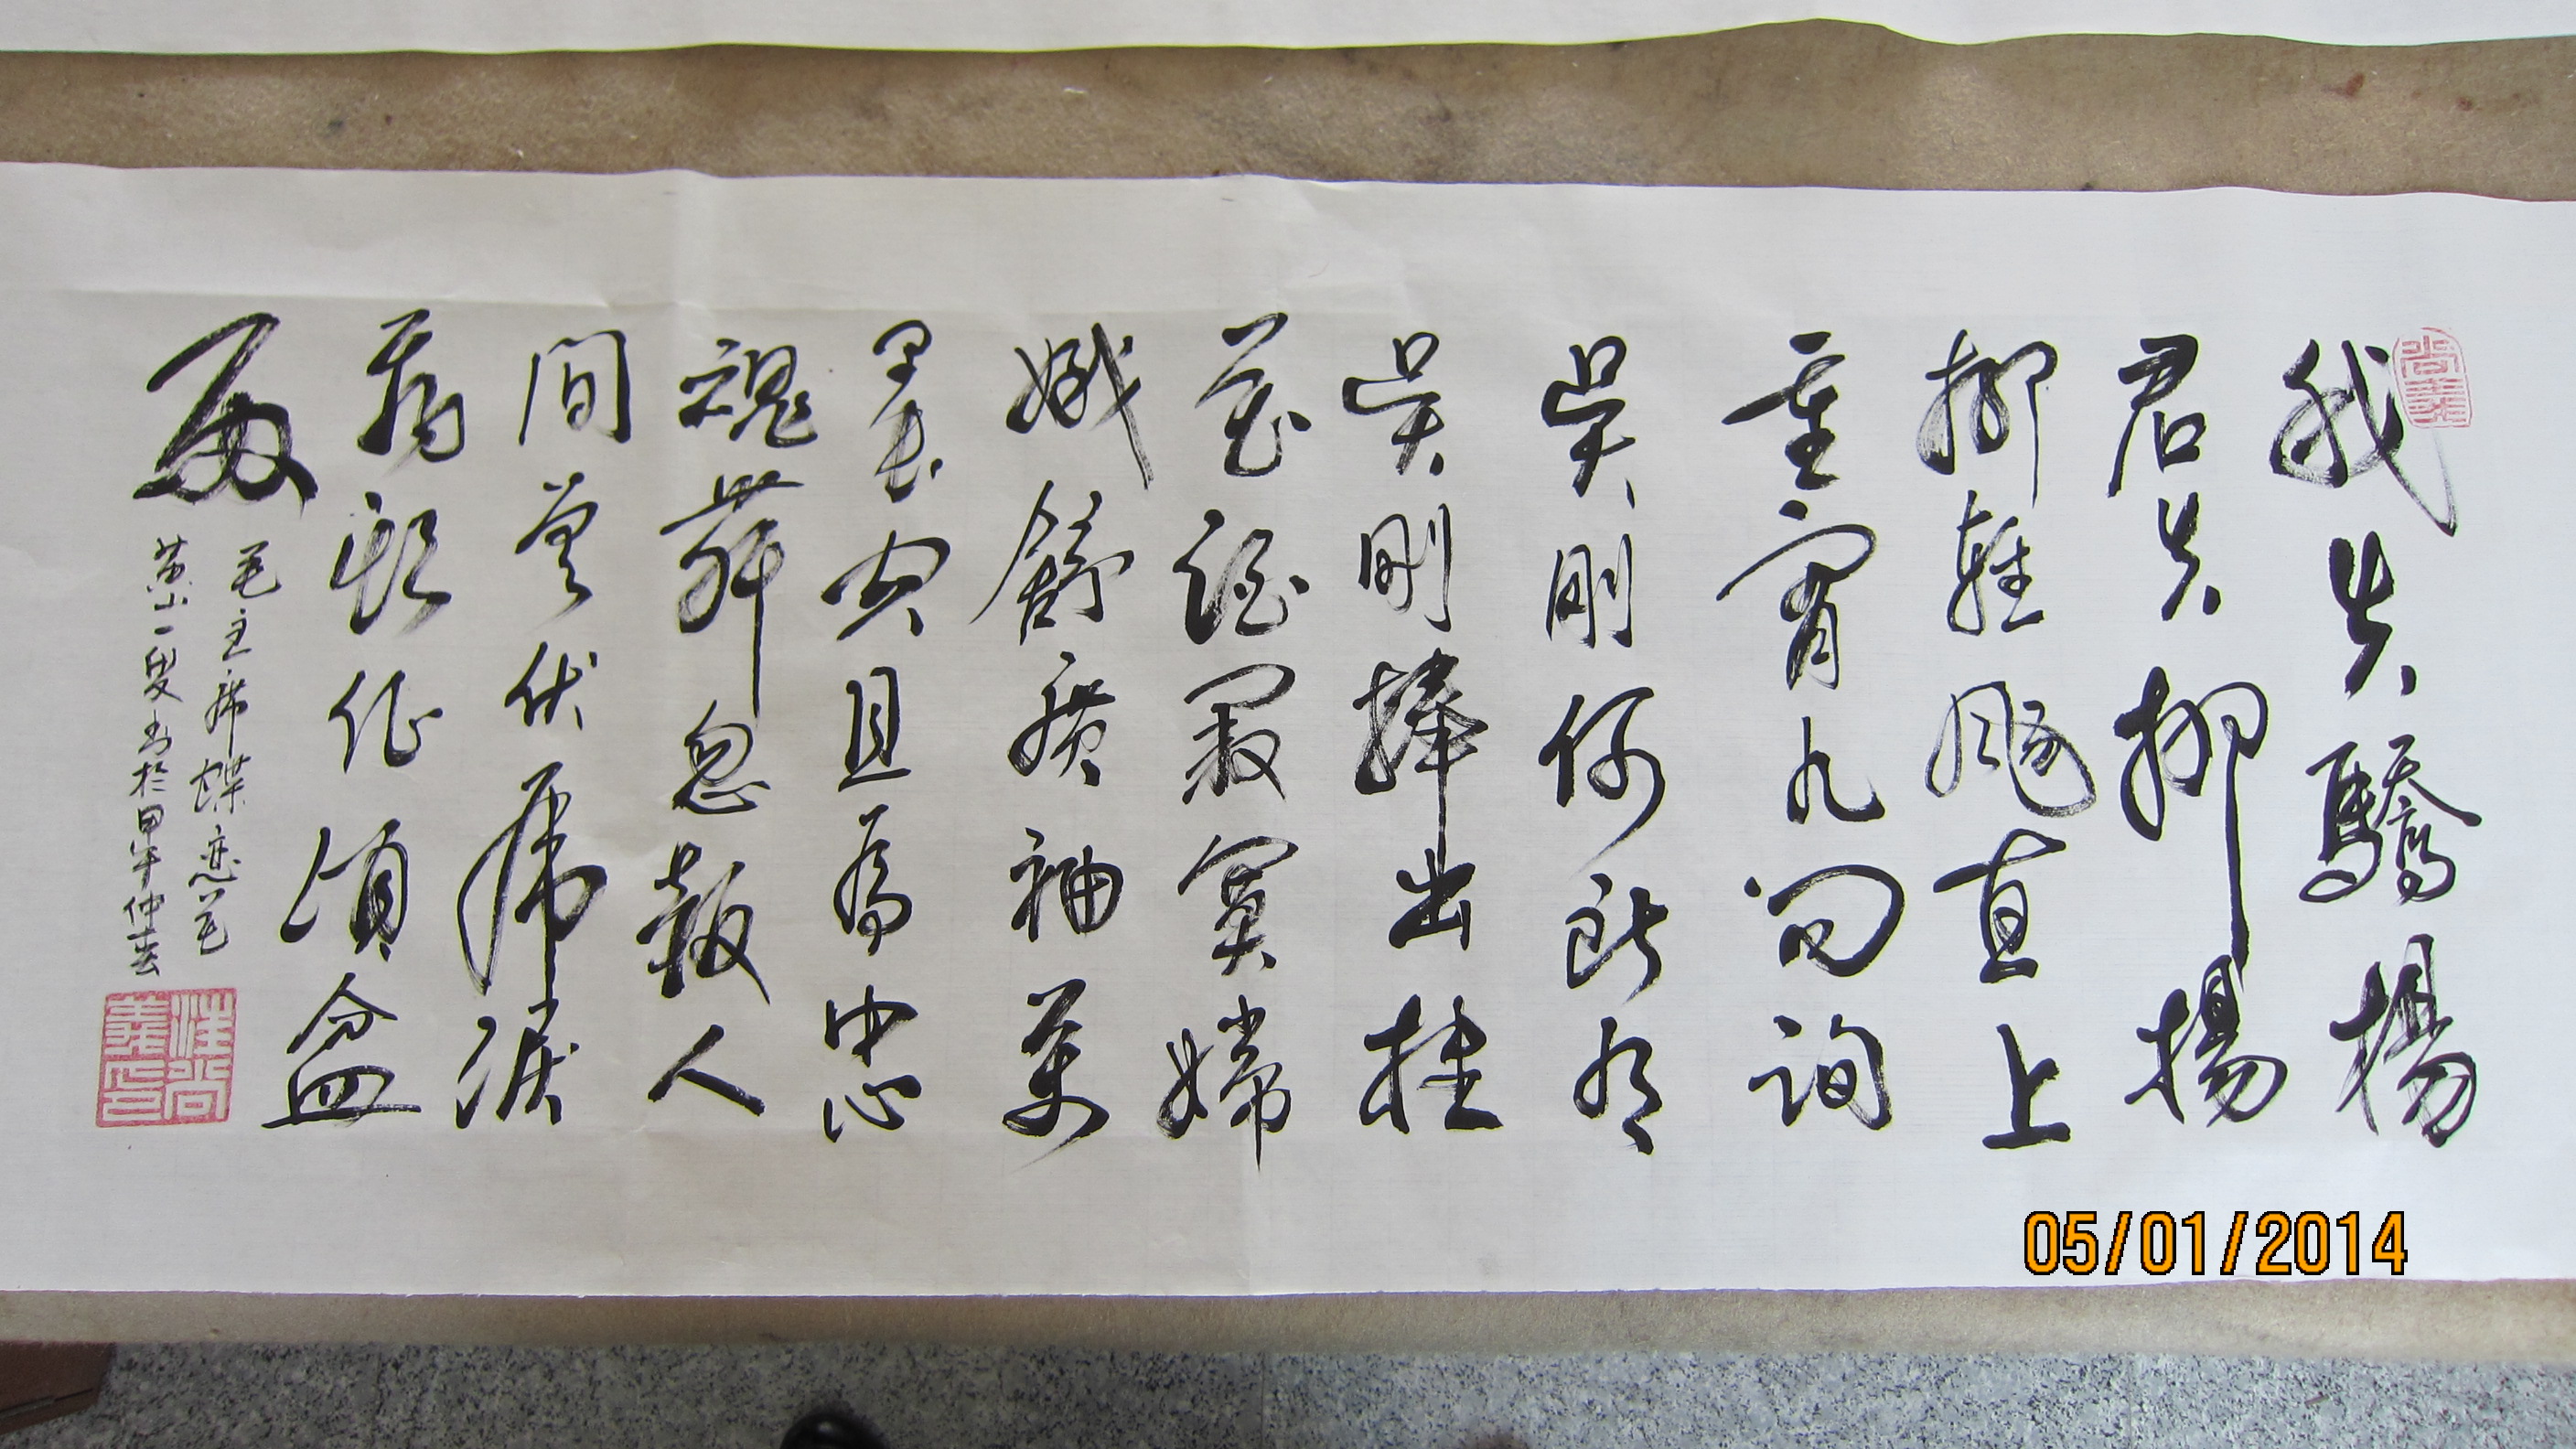 尚義
我失驕楊
君失柳楊
柳輕颺直上
重霄九问詢
吴刚何所有
吴刚捧出桂
花酒寂寞嫦
娥舒廣袖萬
里長空且為忠
魂舞忽報人
間曾伏虎淚
飛頓作傾盆
雨
毛主席蝶恋花
黄山一叟书於甲午仲春
汪尚義印
05/01/2014